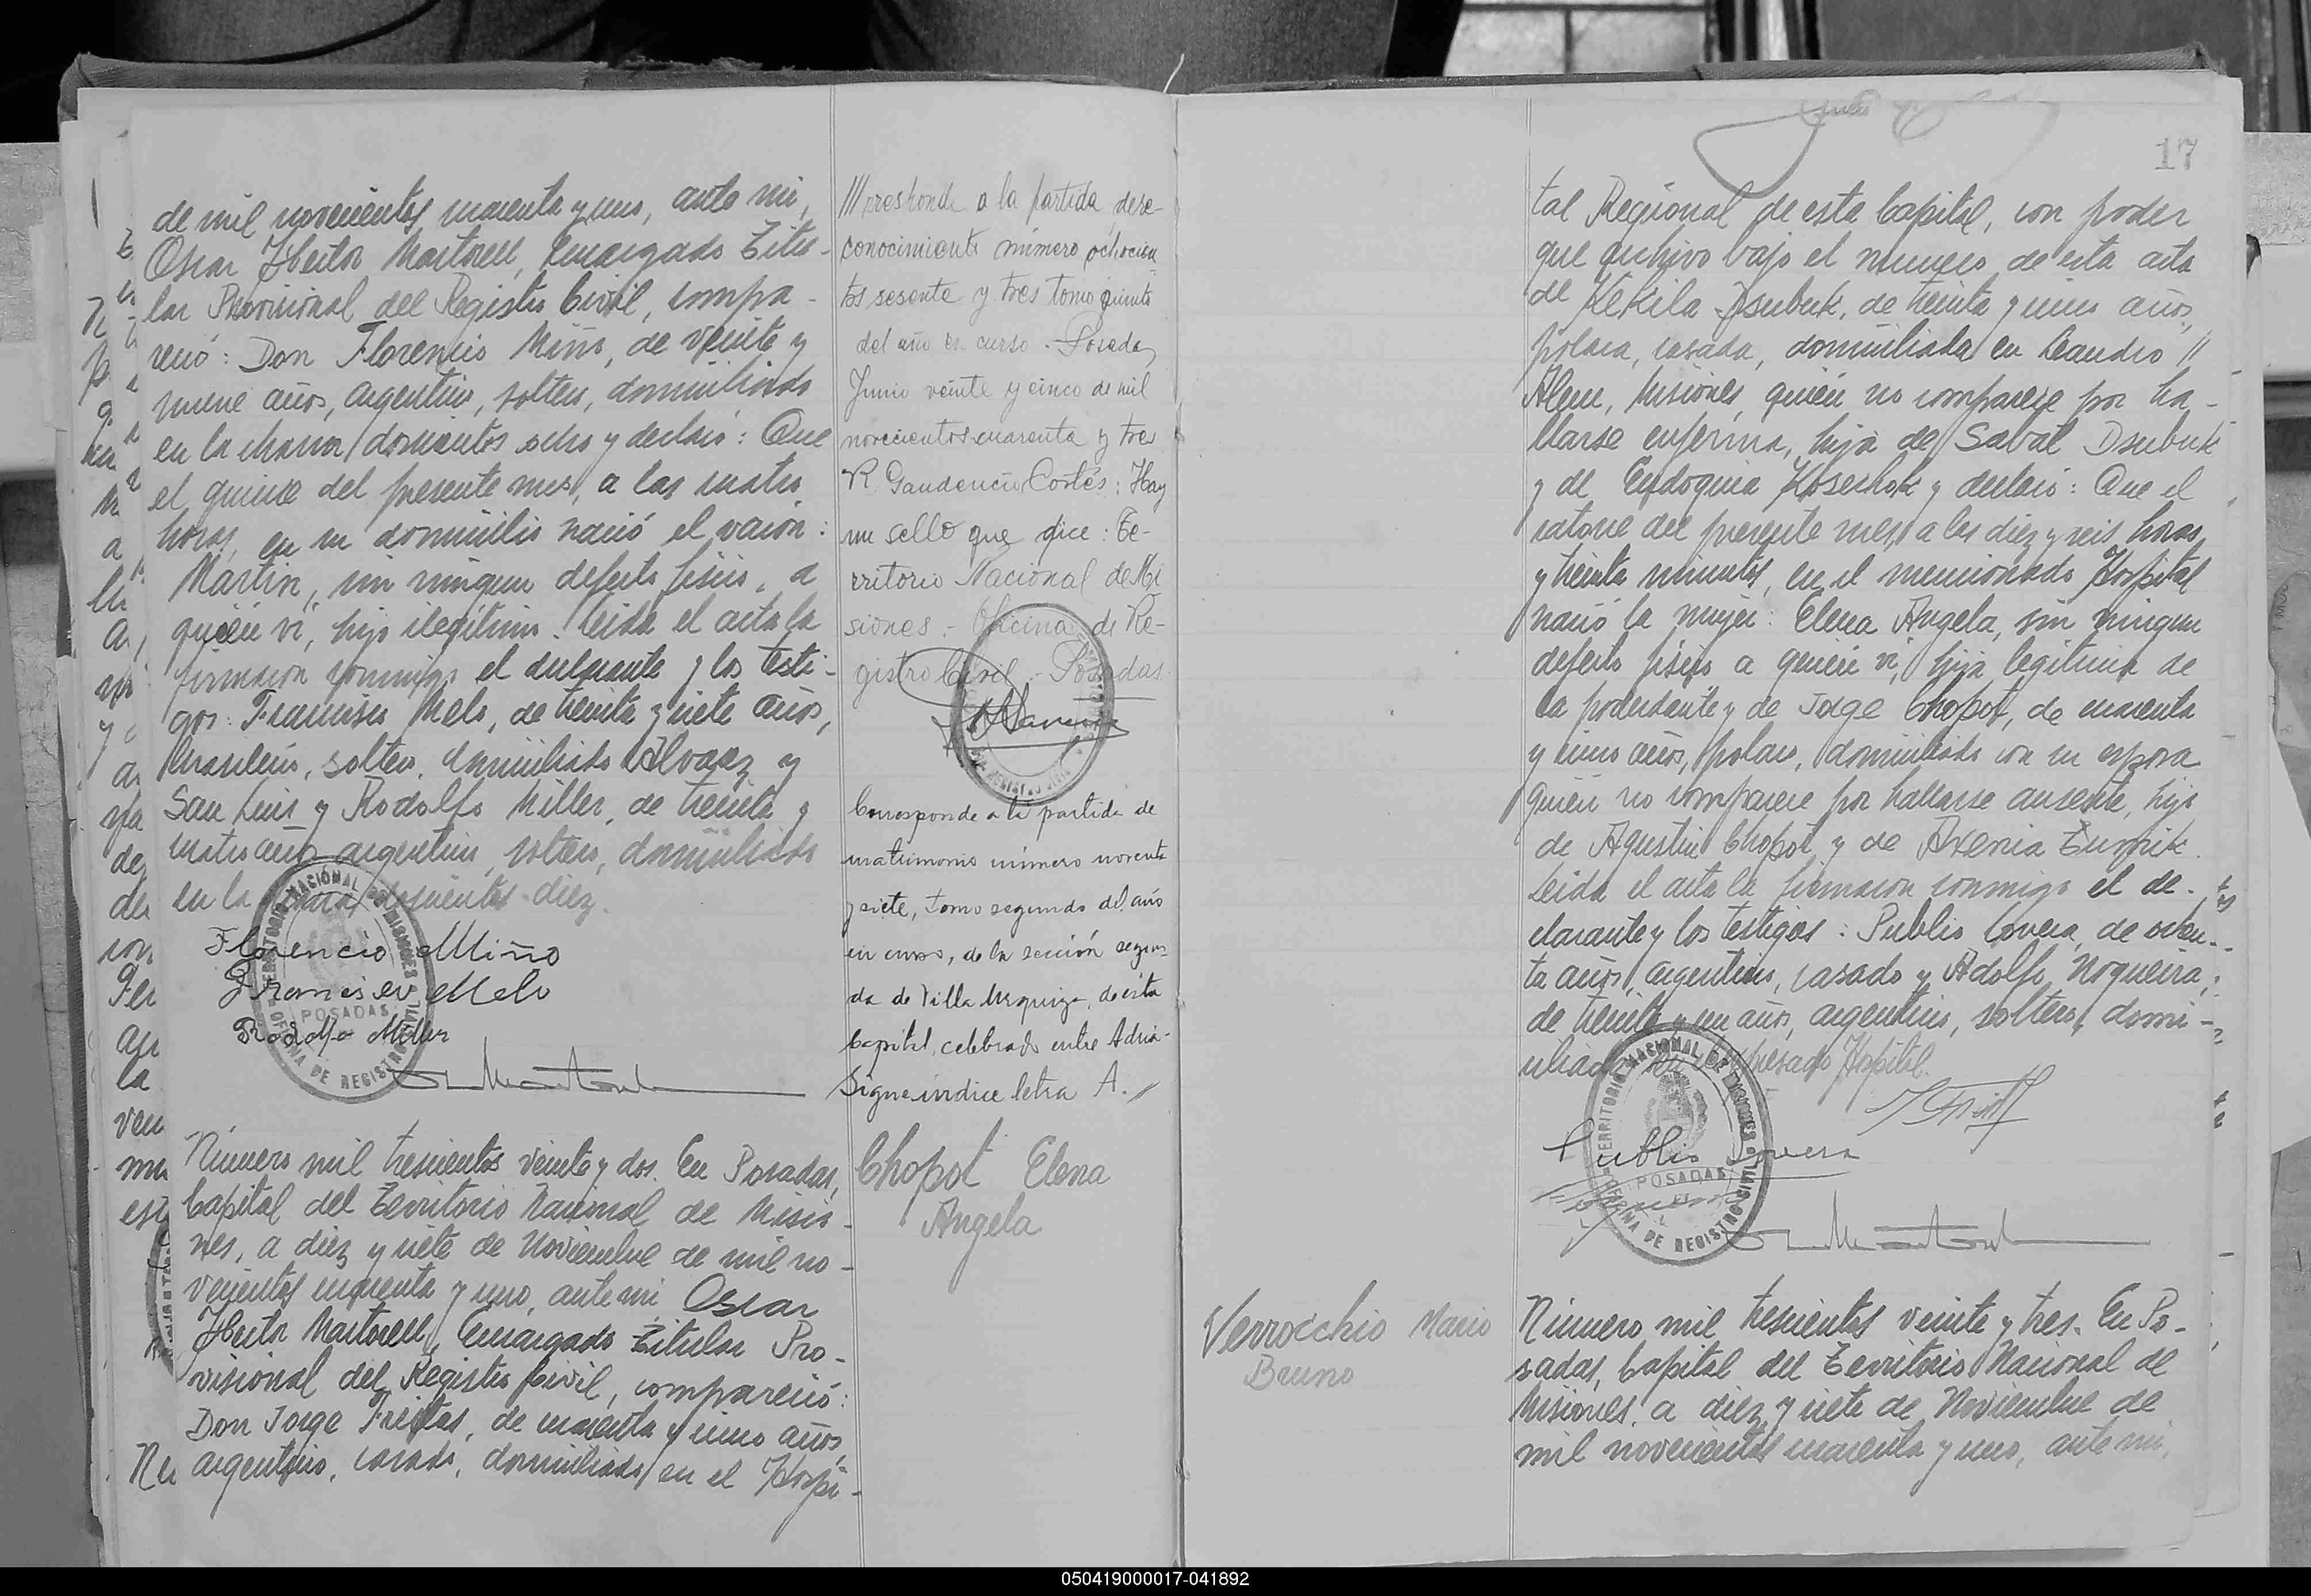 de mil novecientos cuarenta y uno, ante mi,
Oscar Hector Martorell, Encargado Titu-
lar Provisional del Registro Civil, compa-
reció: Don Florencio Miño, de veinte y
nueve años, argentino, soltero, domiciliado
en la chacra doscientos ocho y declaró: Que
el quince del presente mes, a las cuatro
horas, en su domicilio nació el varón:
Martin, sin ningun defecto fisico, a
quién vi, hijo ilegitimo. Leida el acta la
firmaron conmigo el declarante y los testi-
gos: Francisco Melo, de treinta y siete años,
brasileño, soltero, domiciliado Alvarez y
San Luis y Rodolfo Miller, de treinta y
cuatro años, argentino, soltero, domiciliado
en la chacra doscientos diez.
Florencio Miño
Francisco Melo
Rodolfo Miller
TERRITORIO NACIONAL DE MISIONES
POSADAS
OFICINA DE REGISTRO CIVIL
Número mil trescientos veinte y dos. En Posadas,
Capital del Territorio Nacional de Misio-
nes, a diez y siete de Noviembre de mil no-
vecientos cuarenta y uno, ante mi Oscar
Hector Martorell, Encargado Titular Pro-
visional del Registro Civil, compareció:
Don Jorge Freitas, de cuarenta y cinco años,
argentino, casado, domiciliado en el Hospi-
/// presponde a la partida de re-
conocimiento número ochocien
tos sesenta y tres tomo quinto
del año en curso - Posadas,
Junio veinte y cinco de mil
novecientos cuarenta y tres
R. Gaudencio Cortés: Hay
un sello que dice: Te-
rritorio Nacional de Mi
siones.- Oficina de Re-
gistro Civil.- Posadas
Corresponde a la partida de
matrimonio número noventa
y siete, tomo segundo del año
en curso, de la sección segun-
da de Villa Urquiza, de esta
Capital, celebrado entre Adria-
Sigue indice letra A.//
Chopot Elena
Angela
17
tal Regional de esta Capital, con poder
que archivo bajo el numero de esta acta
de Kekila Dsubuk, de treinta y cinco años,
polaca, casada, domiciliada en Leandro N
Alem, Misiones, quién no comparece por ha-
llarse enferma, hija de Sabal Dsubuk
y de Eudoquia Kosechok y declaró: Que el
catorce del presente mes, a las diez y seis horas
y treinta minutos, en el mencionado Hospital
nació la mujer: Elena Angela, sin ningun
defecto fisico a quién vi, hija legitima de
la poderdante y de Jorge Chopot, de cuarenta
y cinco años, polaco, domiciliado con su esposa
quién no comparece por hallarse ausente, hijo
de Agustin Chopot y de Axenia Zumik.
Leida el acta la firmaron conmigo el de-
clarante y los testigos: Publio Lovera, de ochen-
ta años, argentino, casado y Adolfo Nogueira,
de treinta y un años, argentino, soltero, domi-
ciliados en el expresado Hospital.
Publio Lovera
TERRITORIO NACIONAL DE MISIONES
POSADAS
OFICINA DE REGISTRO CIVIL
Verrocchio Mario
Bruno
Número mil trescientos veinte y tres. En Po-
sadas, Capital del Territorio Nacional de
Misiones, a diez y siete de Noviembre de
mil novecientos cuarenta y uno, ante mi,
050419000017-041892